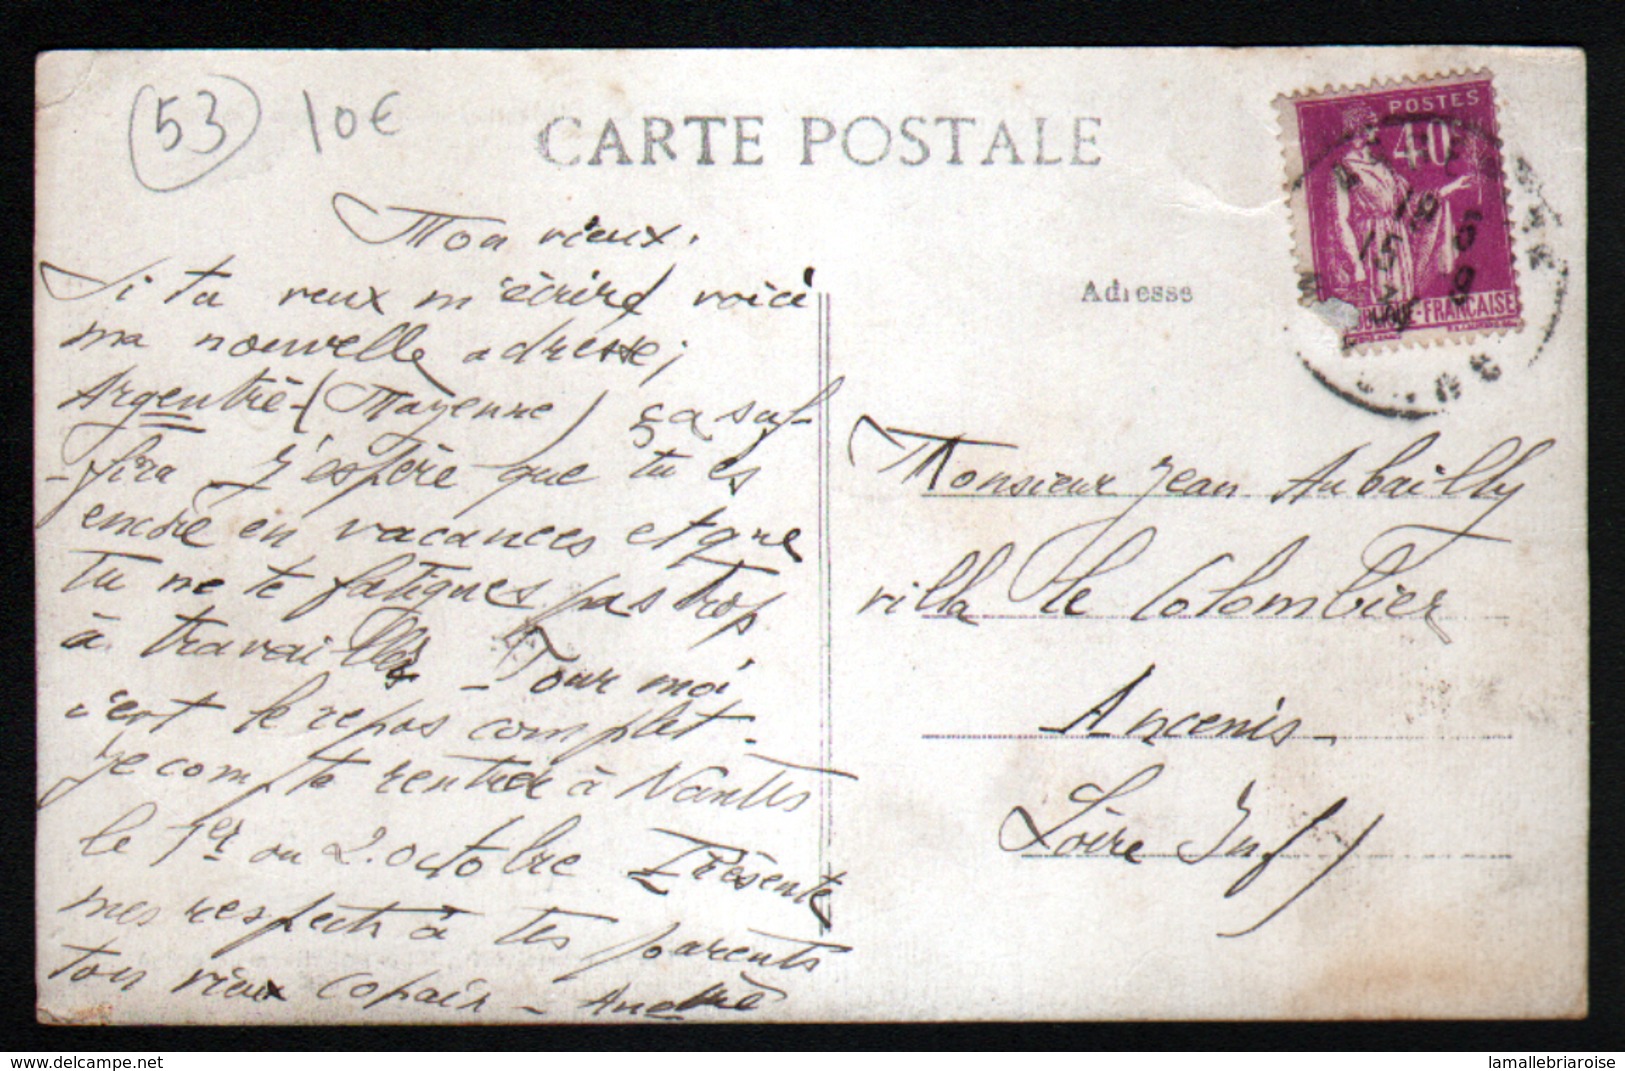 53
10€
CARTE POSTALE
POSTES
40
Mon vieux.
Si tu veux m'écrire voici
ma nouvelle adresse;
Argentré-(Mayenne) ça suf-
-fira J'espère que tu es
encore en vacances et que
tu ne te fatigues pas trop
à travailler - Pour moi
c'est le repos complet -
Je compte rentrer à Nantes
le 1er ou 2.octobre Présente
mes respects à tes parents
ton vieux copain - André
Adresse
Monsieur Jean Aubailly
villa le Colombier
Ancenis -
Loire Inf)
-FRANÇAISE
delcampe.net
lamallebriaroise